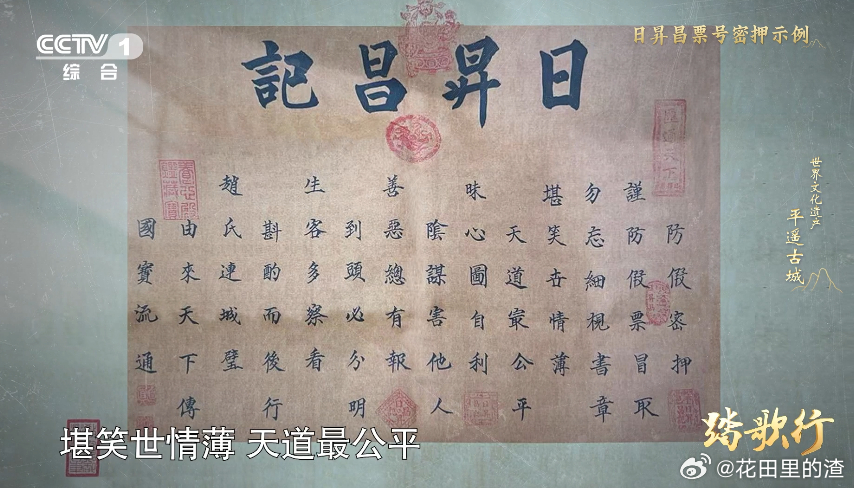 CCTV 1
综合
日昇昌票号密押示例
日昇昌記
防假密押
謹防假票冒取
勿忘細視書章
堪笑世情薄
天道最公平
昧心圖自利
陰謀害他人
善惡總有報
到頭必分明
生客多察看
斟酌而後行
趙氏連城璧
由來天下傳
國寶流通
世界文化遗产
平遥古城
堪笑世情薄 天道最公平
踏歌行
@花田里的渣